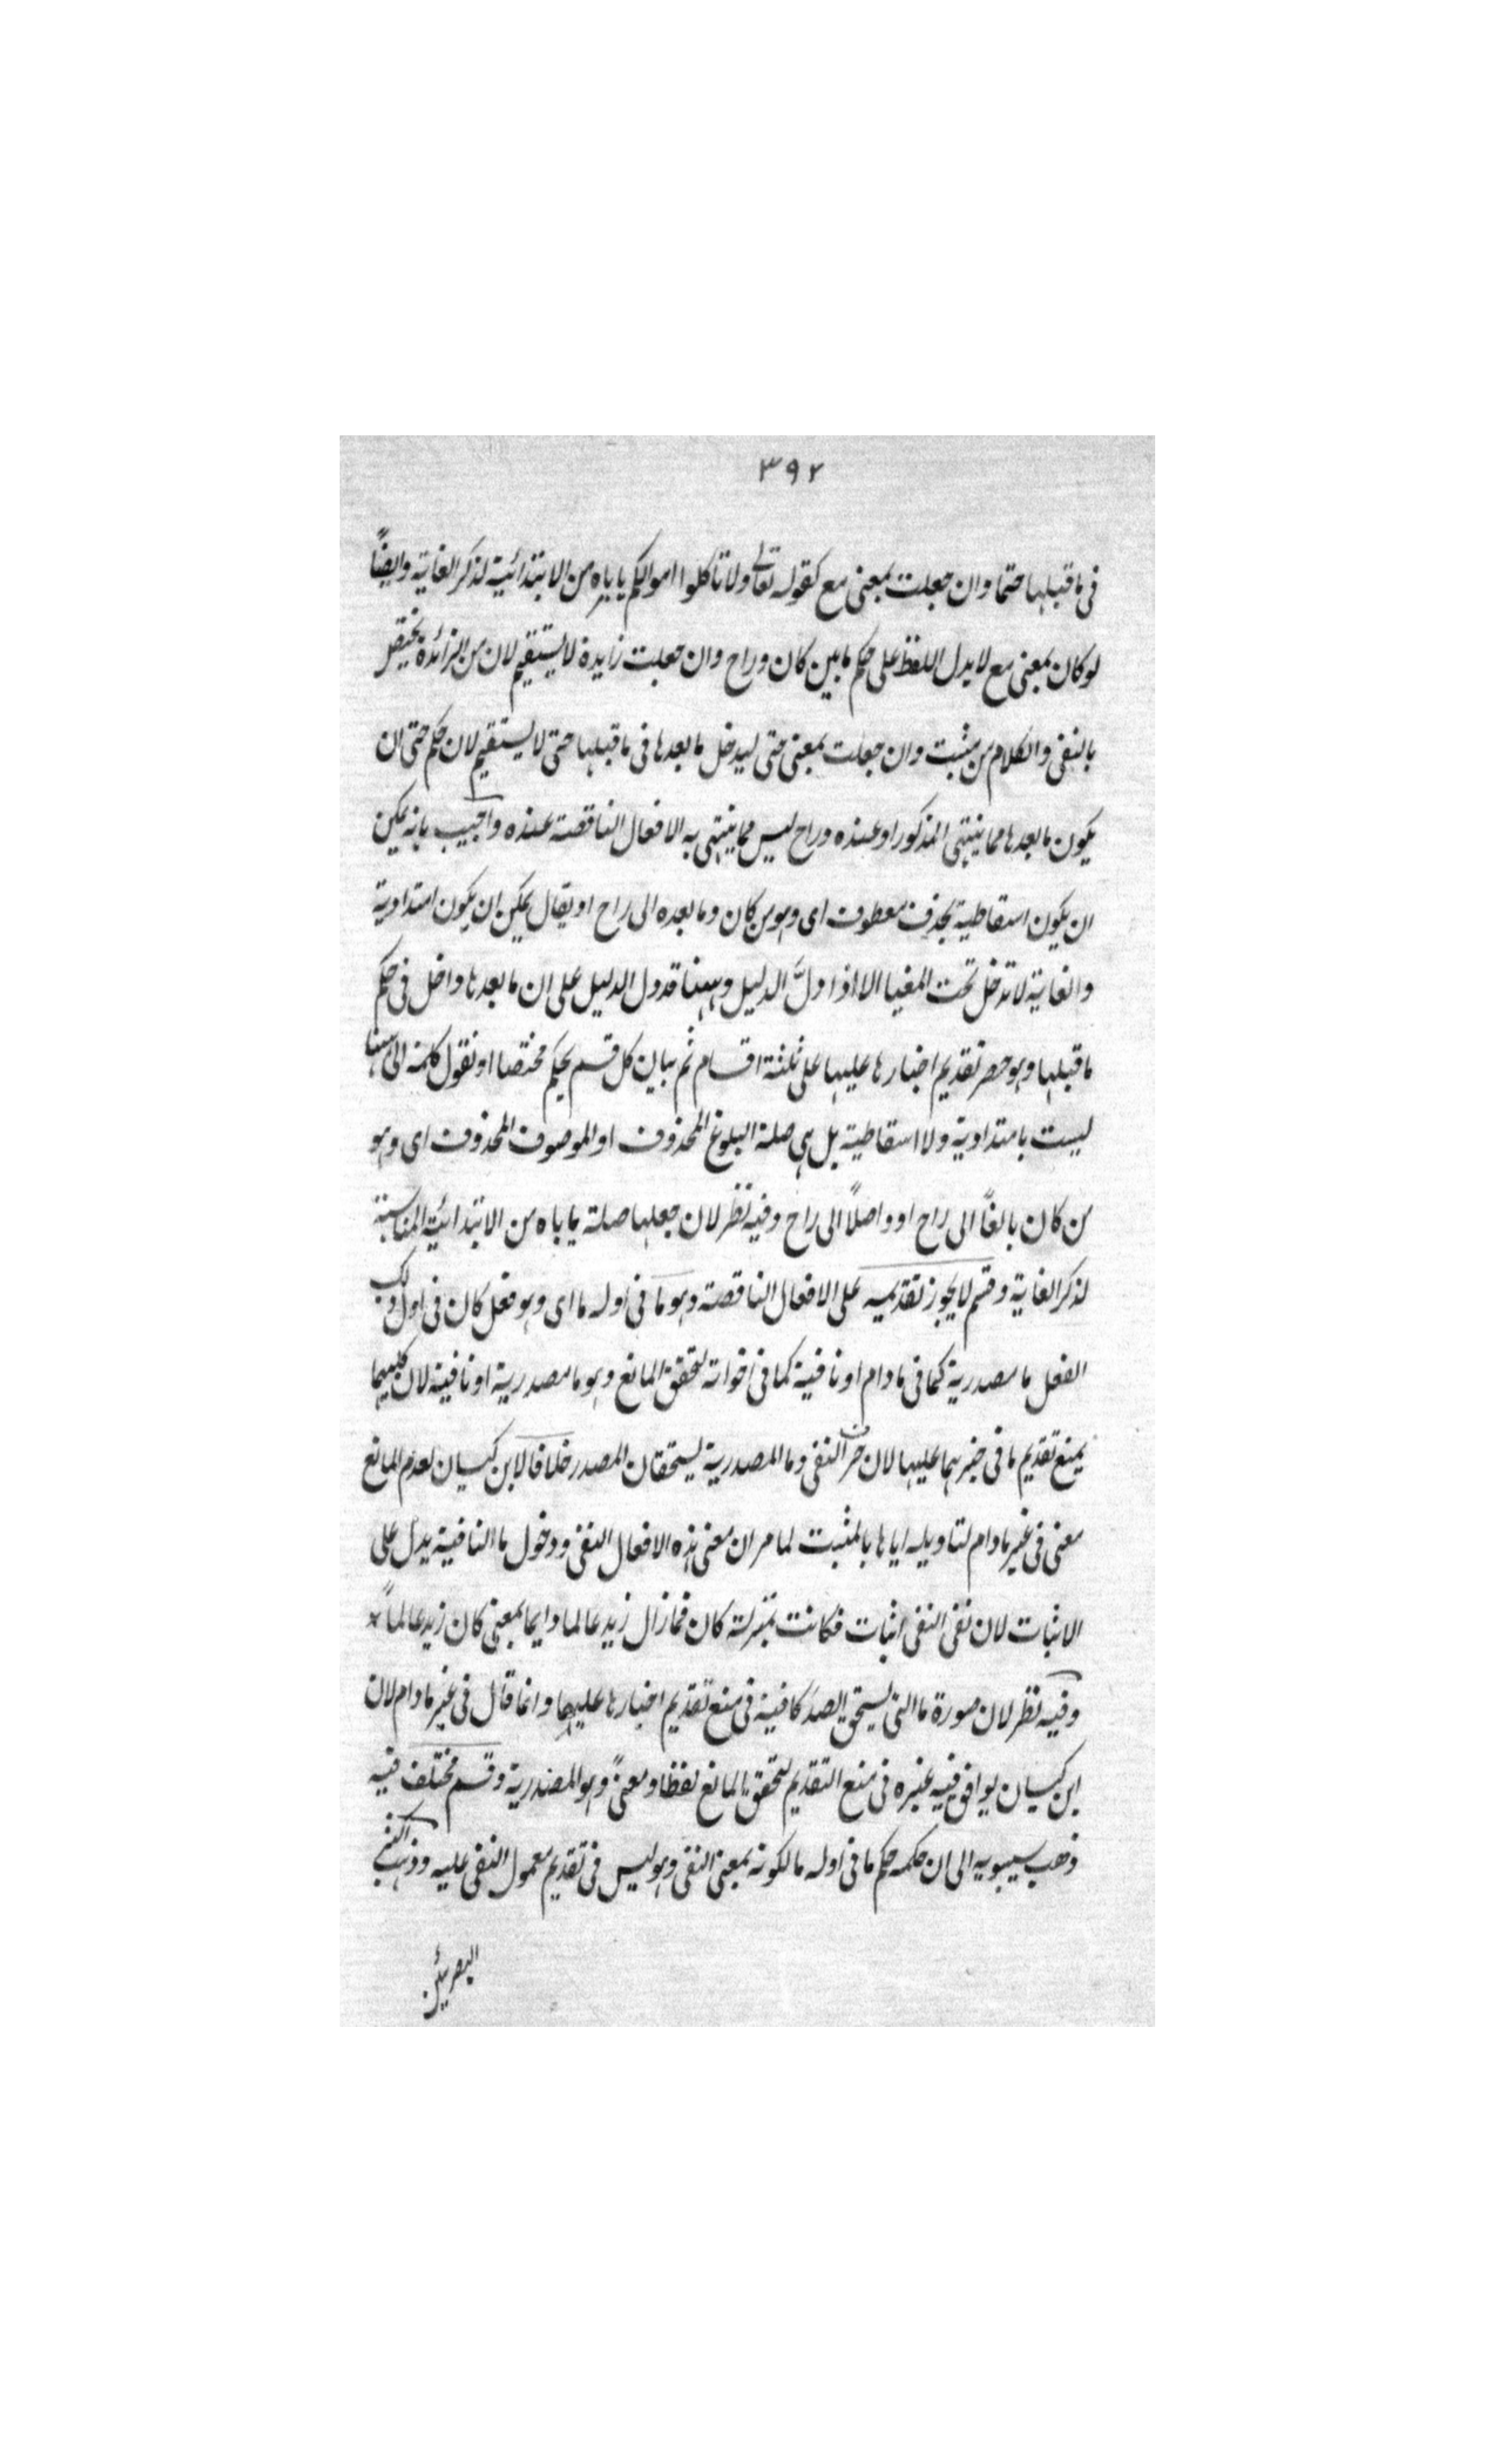 ٣٩٢
فى ما قبلها حتما وان جعلت بمعنى مع كقوله تعالى ولا تاكلوا اموالكم ياباه من الابتدائية لذكر الغاية وايضاً
لو كان بمعنى مع لا يدل اللفظ على حكم ما بين كان وراح وان جعلت زايدة لا يستقيم لان من الزائدة يختص
بالنفى والكلام من مثبت وان جعلت بمعنى حتى ليدخل ما بعدها فى ما قبلها حتى لا يستقيم لان حكم حتى ان
يكون ما بعدها مما ينتهى المذكور او عنده وراح ليس مما ينتهى به الافعال الناقصة عنده واجيب بانه يمكن
ان يكون اسقاطية بحذف معطوف اى وهو من كان وما بعده الى راح او يقال يمكن ان يكون امتدادية
والغاية لا تدخل تحت المغيا الا اذا دلَّ الدليل وههنا قد دل الدليل على ان ما بعدها داخل فى حكم
ما قبلها وهو حصر تقديم اخبارها عليها على ثلثة اقسام ثم بيان كل قسم بحكم مختصا او نقول كلمة الى ههنا
ليست بامتدادية ولا اسقاطية بل هى صلة البلوغ المحذوف او الموصوف المحذوف اى وهو
من كان بالغاً الى راح او واصلاً الى راح وفيه نظر لان جعلها صلة ياباه من الابتدائية المناسبة
لذكر الغاية وقسم لا يجوز تقديمه على الافعال الناقصة وهو ما فى اوله ما اى وهو فعل كان فى اول ذلك
الفعل ما مصدرية كما فى ما دام او نافية كما فى اخواته لتحقق المانع وهو ما مصدرية او نافية لان كليهما
يمنع تقديم ما فى خبرهما عليها لان حرف النفى وما المصدرية يستحقان المصدر خلافا لابن كيسان لعدم المانع
معنى فى غير ما دام لتاويله اياها بالمثبت لما مر ان معنى هذه الافعال النفى ودخول ما النافية يدل على
الاثبات لان نفى النفى اثبات فكانت بمنزلة كان فما زال زيد عالما دايما بمعنى كان زيد عالماً *
وفيه نظر لان صورة ما التى يستحق الصدر كافية فى منع تقديم اخبارها عليها وانما قال فى غير ما دام لان
ابن كيسان يوافق فيه غيره فى منع التقديم لتحقق المانع لفظا ومعنىً وهو المصدرية وقسم مختلف فيه
ذهب سيبويه الى ان حكمه حكم ما فى اوله ما لكونه بمعنى النفى وهو ليس فى تقديم معمول النفى عليه وذهب اكثر
البصريين